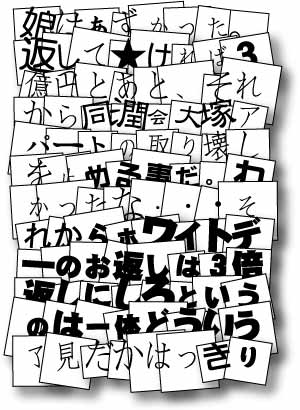 娘はあずかった。
返して★ければ3
億円とあと、それ
から同潤会大塚ア
パートの取り壊し
をよめる事だ。わ
かったな・・・そ
れからホワイトデ
ーのお返しは3倍
返しにしろという
のは一体どういう
了見だかはっきり